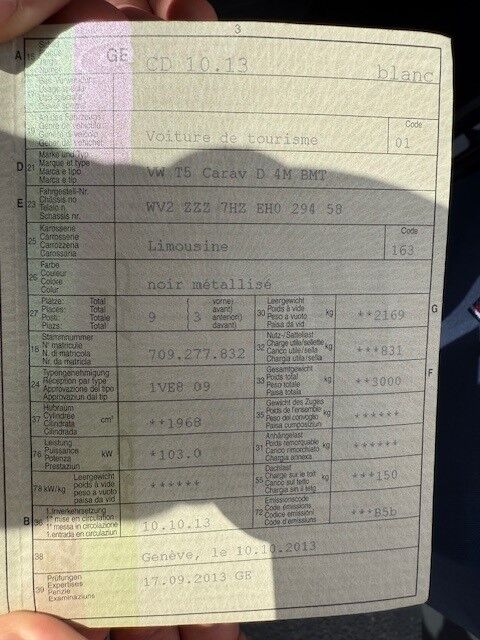 3
A 15 GE CD 10.13 blanc
Code
Voiture de tourisme 01
D 21 Marke und Typ
Marque et type
Marca e tipo
Marca e tip
VW T5 Carav D 4M BMT
E 23 Fahrgestell-Nr.
Châssis no
Telaio n.
Schassis nr.
WV2 ZZZ 7HZ EH0 294 58
25 Karosserie
Carrosserie
Carrozzeria
Carossaria
Limousine
Code
163
26 Farbe
Couleur
Colore
Colur
noir métallisé
27 Plätze: Total
Places: Total
Posti: Totale
Plazs: Total
9 ( 3 vorne)
avant)
anteriori)
davant)
G 30 Leergewicht
Poids à vide
Peso a vuoto
Paisa da vid
kg **2169
18 Stammnummer
N° matricule
N. di matricola
Nr. da matricla
709.277.832
32 Nutz-/Sattellast
Charge utile/sellette
Carico utile/sella
Chargia utila/sella
kg ***831
24 Typengenehmigung
Réception par type
Approvazione del tipo
Approvaziun dal tip
1VE8 09
F 33 Gesamtgewicht
Poids total
Peso totale
Paisa totala
kg **3000
37 Hubraum
Cylindrée
Cilindrata
Cilindrada
cm³ **1968
35 Gewicht des Zuges
Poids de l'ensemble
Peso del convoglio
Paisa cumposiziun
kg ******
76 Leistung
Puissance
Potenza
Prestaziun
kW *103.0
31 Anhängelast
Poids remorquable
Carico rimorchiato
Chargia annexa
kg ******
78 kW/kg Leergewicht
poids à vide
peso a vuoto
paisa da vid
******
55 Dachlast
Charge sur le toit
Carico sul tetto
Chargia sin il tetg
kg ***150
B 36 1.Inverkehrsetzung
1re mise en circulation
1a messa in circolazione
1.entrada en circulaziun
10.10.13
72 Emissionscode
Code émissions
Codice emissioni
Code d'emissiuns
***B5b
38 Genève, le 10.10.2013
39 Prüfungen
Expertises
Perizie
Examinaziuns
17.09.2013 GE